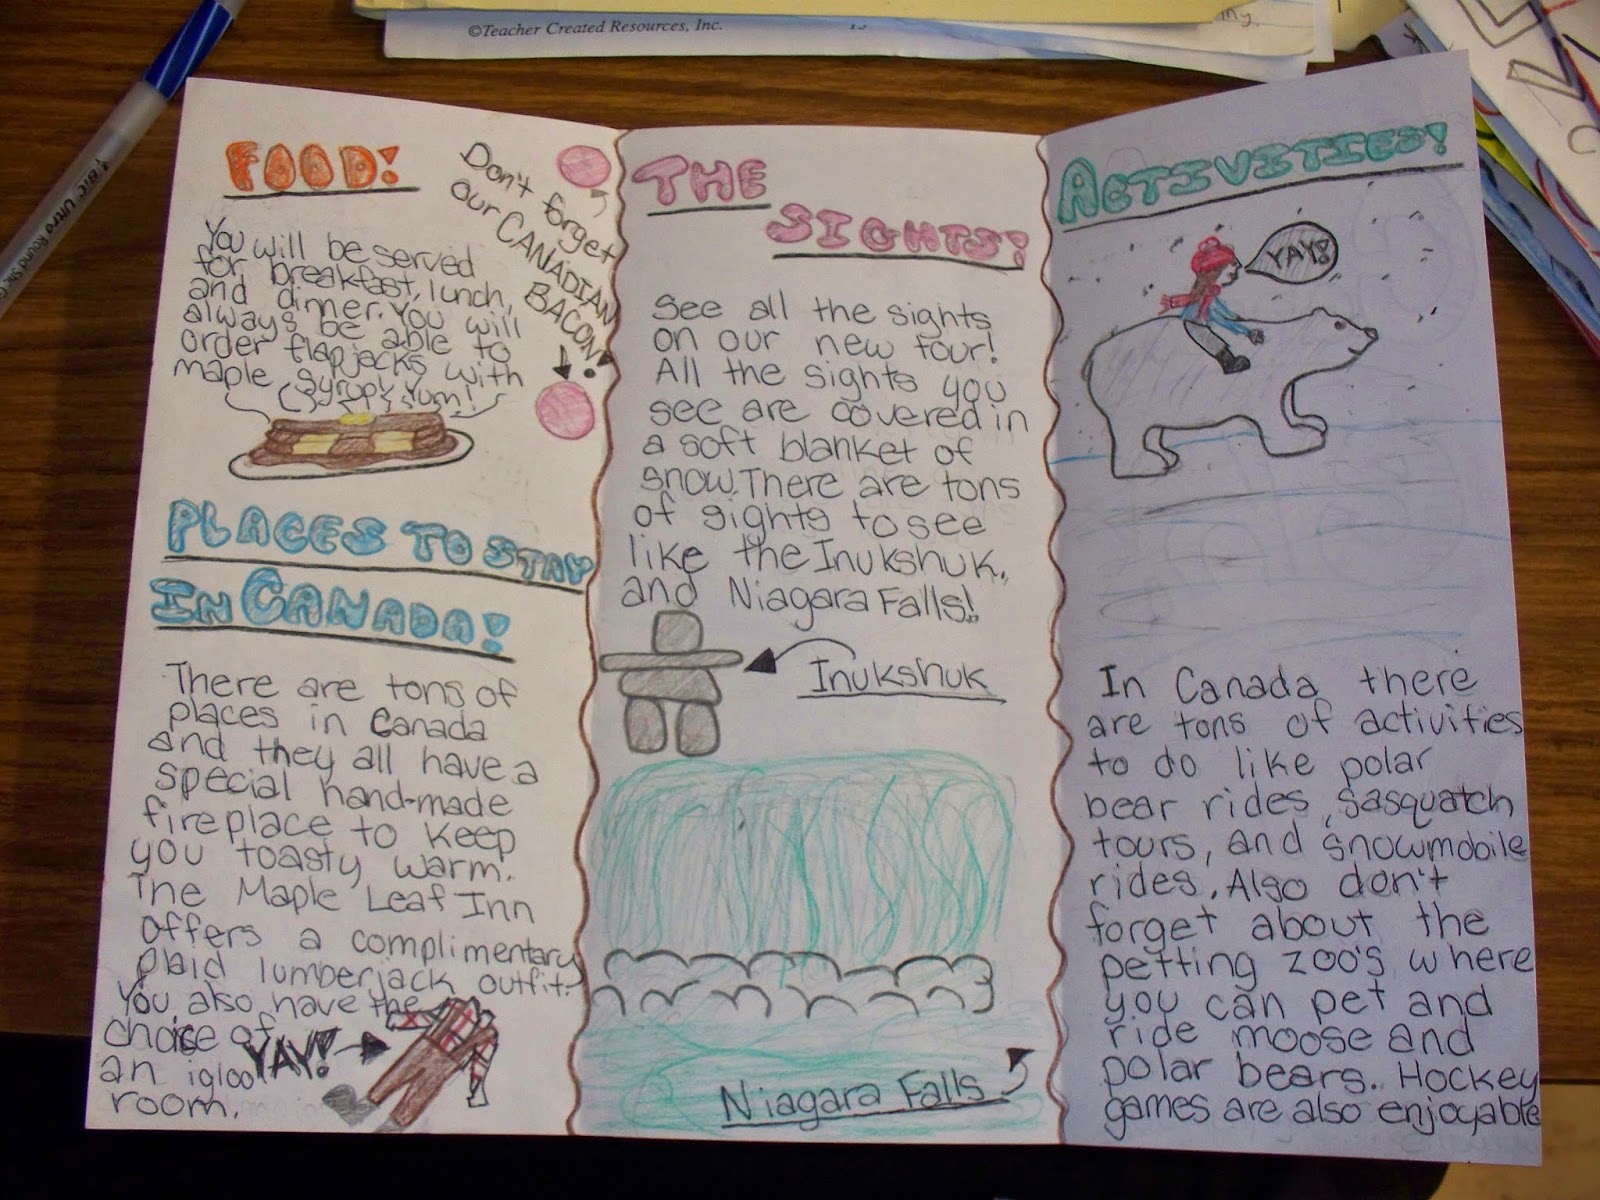 ©Teacher Created Resources, Inc.
BIC Ultra Round Stic
FOOD!
You will be served
for breakfast, lunch,
and dinner. You will
always be able to
order flapjacks with
maple syrup! Yum!
Don't forget
our CANADIAN
BACON!
PLACES TO STAY
IN CANADA!
There are tons of
places in Canada
and they all have a
special hand-made
fireplace to keep
you toasty warm.
The Maple Leaf Inn
offers a complimentary
plaid lumberjack outfit.
You also have the
choice of
an igloo
room.
YAY!
THE
SIGHTS!
See all the sights
on our new tour!
All the sights you
see are covered in
a soft blanket of
snow. There are tons
of sights to see
like the Inukshuk,
and Niagara Falls!
Inukshuk
Niagara Falls
ACTIVITIES!
YAY!
In Canada there
are tons of activities
to do like polar
bear rides, sasquatch
tours, and snowmobile
rides. Also don't
forget about the
petting zoo's where
you can pet and
ride moose and
polar bears. Hockey
games are also enjoyable